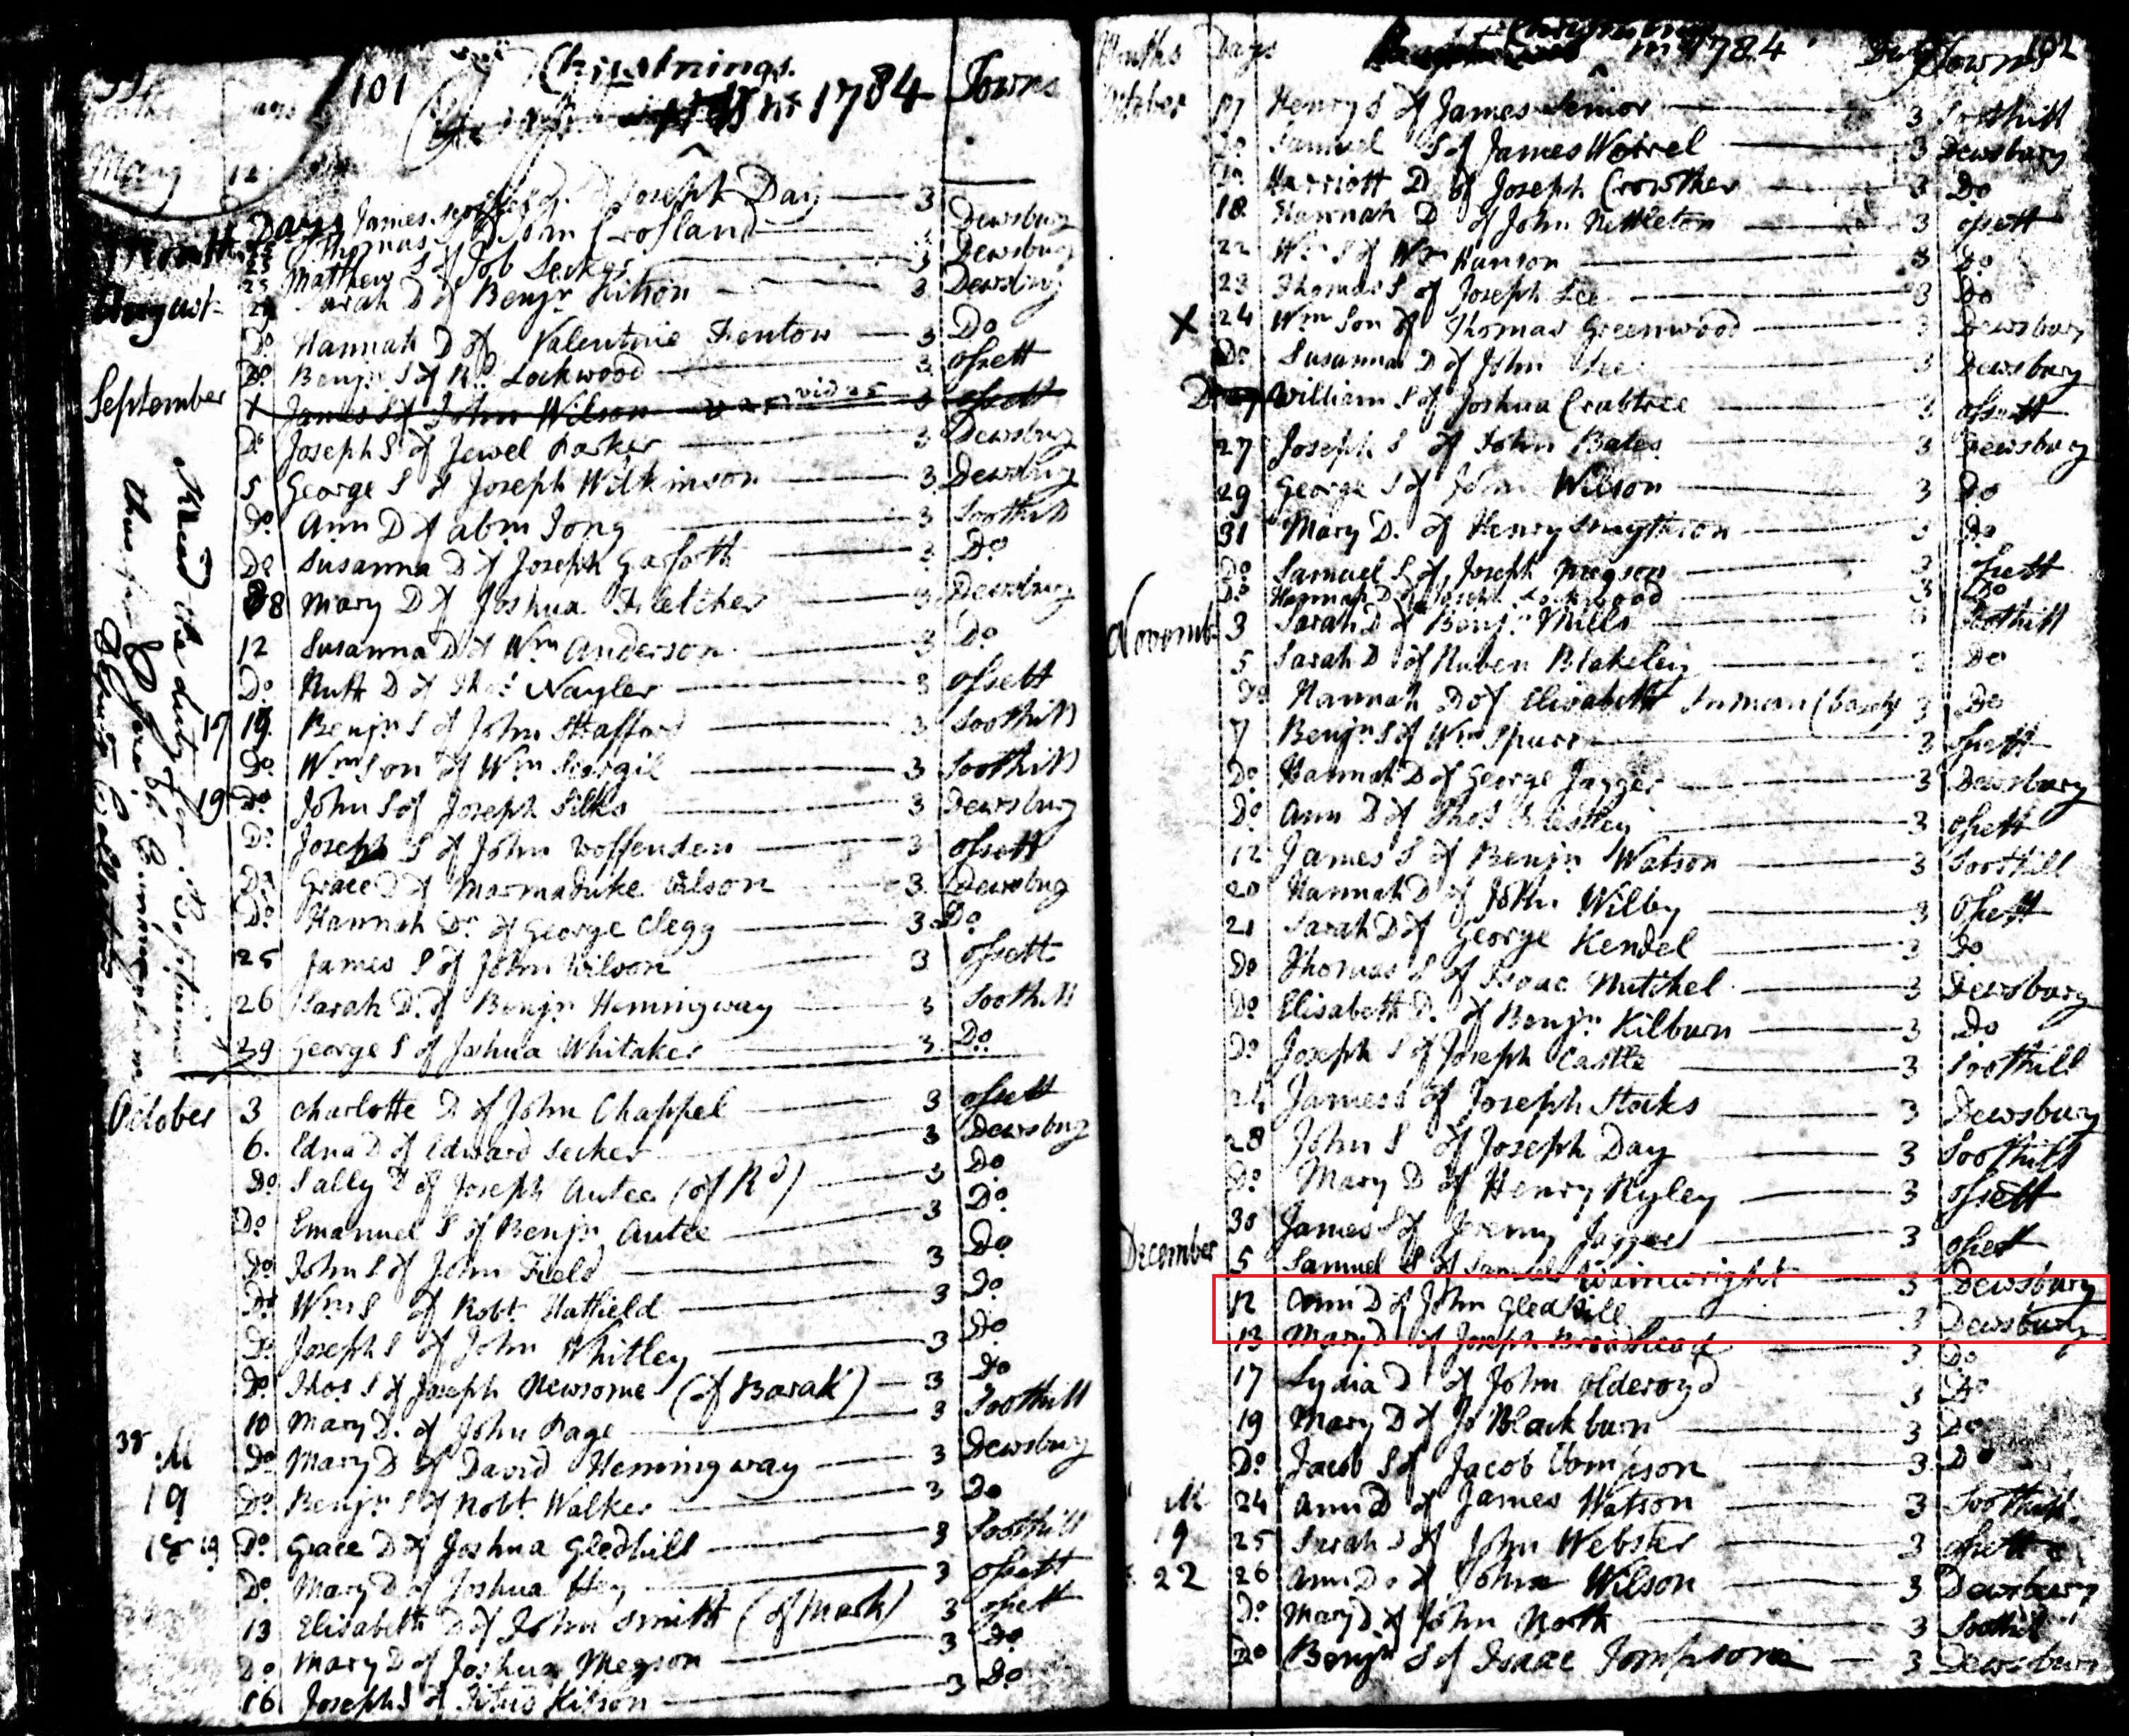 101 Christnings.
1784 Towns
May 12
Days James Joseph Day 3 Dewsbury
Thomas John Crosland Dewsbury
25 Matthew S of Job Secker 3 Dewsbury
August 29 Sarah D of Benjn Kitson 3 Dewsbury
Do Hannah D of Valentine Fenton 3 Do
Do Benjn S of Rd Lockwood 3 ofsett
September James S of John Wilson 3 ofsett
Do Joseph S of Jewel Parker 3 Dewsbury
5 George S of Joseph Wilkinson 3 Dewsbury
Do Ann D of abm Jong 3 Soothill
Do Susanna D of Joseph Gaforth 3 Do
8 Mary D of Joshua Fletcher 3 Dewsbury
12 Susanna D of Wm Anderson 3 Do
Do Ruth D of Thos Nayler 3 ofsett
17 19 Benjn S of John Stafford 3 Soothill
Do Wm Son of Wm Scorgil 3 Soothill
19 Do John S of Joseph Silks 3 Dewsbury
Do Joseph S of John Woffenden 3 ofsett
Do Grace D of Marmaduke Wilson 3 Dewsbury
Do Hannah Dr of George Clegg 3 Do
25 James S of John Wilson 3 ofsett
26 Sarah D. of Benjn Hemingway 3 Soothill
29 George S of Joshua Whitaker 3 Do
Reced the duty for Baptisms
thus far
October 3 Charlotte D of John Chappel 3 ofsett
6. Edna D of Edward Secker 3 Dewsbury
Do Sally D of Joseph Autee (of Rd) 3 Do
Do Emanuel S of Benjn Autee 3 Do
Do John S of John Field 3 Do
Do Wm S of Robt Hatfield 3 Do
Do Joseph S of John Whitley 3 Do
Do Thos S of Joseph Newsome (of Barak) 3 Do
10 Mary D. of John Page 3 Soothill
38 M Do Mary D of David Hemingway 3 Dewsbury
19 Do Benjn S of Robt Walker 3 Do
19 Do Grace D of Joshua Gledhill 3 Soothill
Do Mary D of Joshua Hey 3 ofsett
13 Elisabeth D of John Smith (of Mark) 3 ofsett
Do Mary D of Joshua Megson 3 Do
16 Joseph S of Titus Kitson 3 Do
Months Days 1784 Towns 102
October 17 Henry S of James Senior 3 Soothill
Do Samuel S of James Worrel 3 Dewsbury
Do Harriott D of Joseph Crowther 3 Do
18 Hannah D of John Nettleton 3 ofsett
22 Wm S of Wm Hanson 3 Do
23 Thomas S of Joseph Lee 3 Do
X 24 Wm Son of Thomas Greenwood 3 Dewsbury
Do Susanna D of John Lee 3 Dewsbury
Do William S of Joshua Crabtree 3 ofsett
27 Joseph S of John Bates 3 Dewsbury
29 George S of John Wilson 3 Do
31 Mary D. of Henry Smythson 3 Do
Do Samuel S of Joseph Megson 3 ofsett
Do Hannah D of Joseph Lockwood 3 Do
Novemb 3 Sarah D of Benjn Mills 3 Soothill
5 Sarah D of Ruben Blakeley 3 Do
Do Hannah D of Elisabeth Inman 3 Do
7 Benjn S of Wm Spurr 3 ofsett
Do Hannah D of George Jagger 3 Dewsbury
Do Ann D of Thos 3 ofsett
12 James S of Benjn Watson 3 Soothill
20 Hannah D of John Wilby 3 Ofsett
21 Sarah D of George Kendel 3 Do
Do Thomas S of Isaac Mitchel 3 Dewsbury
Do Elisabeth D. of Benjn Kilburn 3 Do
Do Joseph S of Joseph Castle 3 Soothill
24 James S of Joseph Stocks 3 Dewsbury
28 John S of Joseph Day 3 Soothill
Do Mary D of Henry Ryley 3 ofsett
30 James S of Jeremy Jagger 3 ofsett
December 5 Samuel S of Samuel Wainwright 3 Dewsbury
12 Ann D of John Gledhill 3 Dewsbury
13 Mary D of Joseph Broadhead 3 Do
17 Lydia D of John Olderoyd 3 Do
19 Mary D of Jo Blackburn 3 Do
Do Jacob S of Jacob Tompson 3 Do
M 24 Ann D of James Watson 3 Soothill
19 25 Sarah D of John Webster 3 ofsett
22 26 Ann D. of John Wilson 3 Dewsbury
Do Mary D of John North 3 Soothil
Do Benjn S of Isaac Tompson 3 Dewsbury